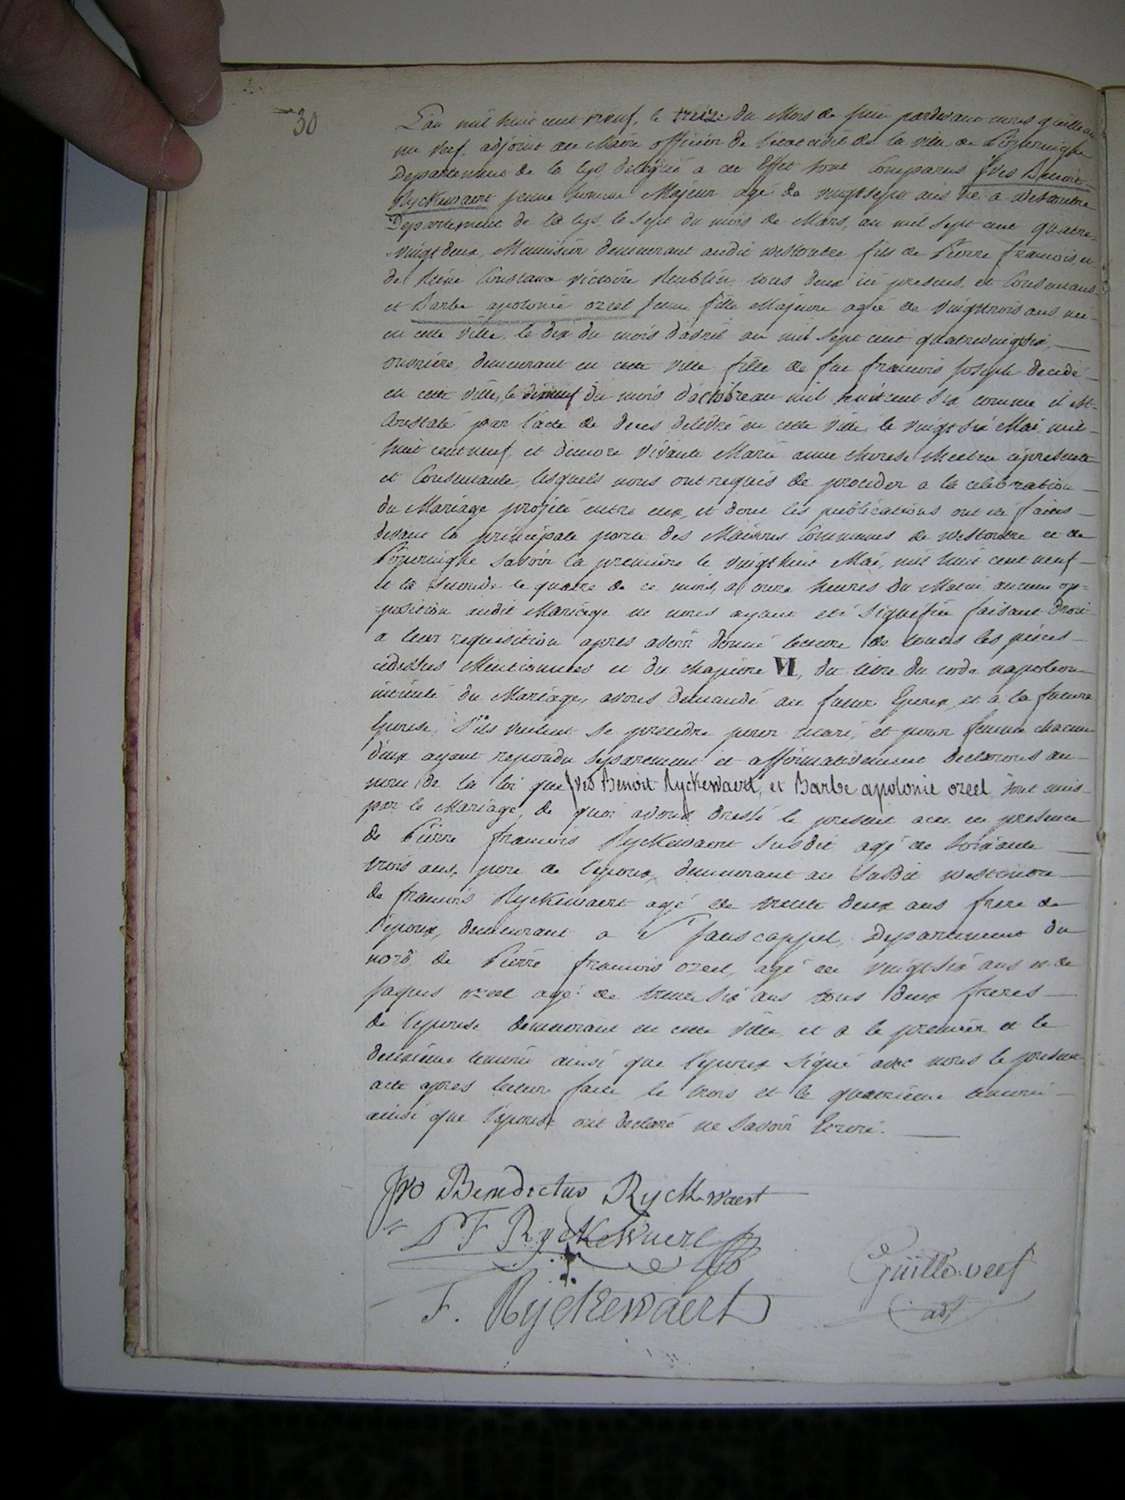 30
L'an mil huit cent neuf, le treize du Mois de Juin pardevant nous Guillaume
ne Verf. adjoint au Maire officier de l'etat civil de la ville de Poperinghe
Departement de la Lys délégué a cet Effet sont Comparus Yves Benoit
Ryckewaert jeune homme Majeur agé de vingtsept ans né a Westoutre
Departement de la Lys le sept du mois de Mars, an mil sept cent quatre-
vingt deux, Meunisier demeurant audit westoutre fils de Pierre francois, et
de Reine Constance Victoire tous deux ici presens, et Consentans
et Barbe apolonie ozeel Jeune fille Majeure agée de vingttrois ans née
en cette ville le dix du mois d'avril an mil sept cent quatrevingtsix,
ouvrière demeurant en cette ville fille de feu francois Joseph decedé
en cette ville, le dixneuf du mois d'octobre an mil huit cent six comme il est
Constaté par l'acte de deces delivré en cette ville le vingt six Mai mil
huit cent neuf, et d'encore vivante Marie anne therese ci presente
et Consentante, lesquels nous ont requis de proceder a la celebration
du Mariage projeté entre eux, et dont les publications ont été faites
devant la principale porte des Maisons Communes de Westoutre et de
Poperinghe savoir la premiere le vingthuit Mai, mil huit cent neuf
et la seconde le quatre de ce mois, a onze heures du Matin aucune op-
position audit Mariage ne nous ayant été signifiée faisant droit
a leur requisition apres avoir donné lecture de toutes les pièces
cidessus Mentionnées et du chapitre VI, du titre du code napoleon
intitulé du Mariage, avons demandé au futur Epoux, et à la future
Epouse, s'ils veulent se prendre pour mari, et pour femme chacun
d'eux ayant repondu separement et affirmativement declarons au
nom de la loi que Yves Benoit Ryckewaert, et Barbe apolonie ozeel sont unis
par le Mariage, de quoi avons dressé le present acte en presence
de Pierre francois Ryckewaert susdit agé de soixante
trois ans, pere de l'epoux, demeurant au susdit westoutre
de francois Ryckewaert agé de trente deux ans frere de
l'epoux, demeurant a St Jans cappel, Departement du
nord, de Pierre francois ozeel, agé de vingtsix ans et de
Jaques ozeel agé de trente six ans tous deux freres
de l'epouse demeurant en cette ville, et a le premier et le
deuxième temoin ainsi que l'epoux signé avec nous le present
acte apres lecture faite le trois et le quatrième temoin
ainsi que l'epouse ont declaré ne savoir Ecrire.
Ivo Benedictus Ryckewaert
P F Ryckewaert
Guille. verf
adj
F. Ryckewaert